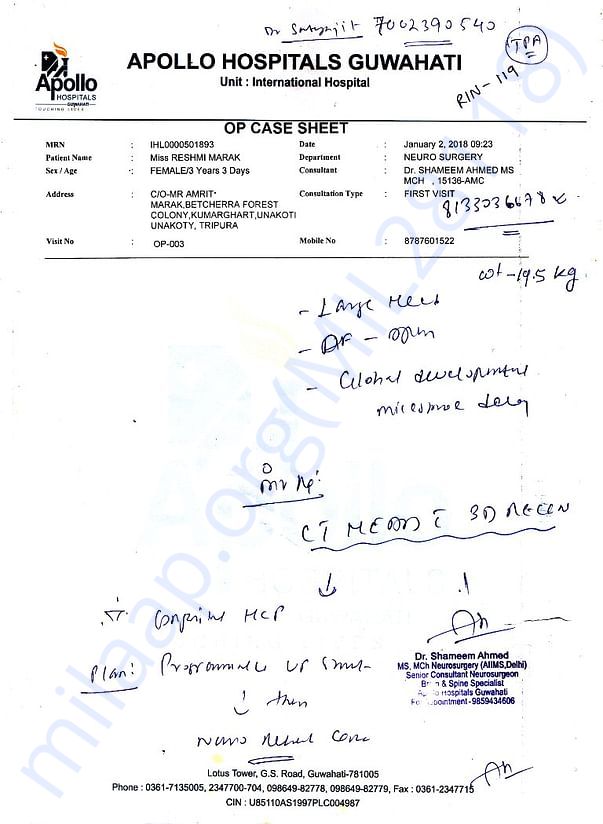 Dr Satyajit 7002390540
TPA
RIN-119
Apollo
HOSPITALS
GUWAHATI
TOUCHING LIVES
APOLLO HOSPITALS GUWAHATI
Unit : International Hospital
OP CASE SHEET
MRN : IHL0000501893 Date : January 2, 2018 09:23
Patient Name : Miss RESHMI MARAK Department : NEURO SURGERY
Sex / Age : FEMALE/3 Years 3 Days Consultant : Dr. SHAMEEM AHMED MS
MCH , 15136-AMC
Address : C/O-MR AMRIT Consultation Type : FIRST VISIT
MARAK,BETCHERRA FOREST
COLONY,KUMARGHART,UNAKOTI
UNAKOTY, TRIPURA
8133036678
Visit No : OP-003 Mobile No : 8787601522
wt - 19.5 kg
- Large Head
- AF - open
- Global development
milestone delay
CT HEAD 3D RECON
HCP
Plan: Programmable VP Shunt
then
Neuro Rehab Care
Dr. Shameem Ahmed
MS, MCh Neurosurgery (AIIMS,Delhi)
Senior Consultant Neurosurgeon
Brain & Spine Specialist
Apollo Hospitals Guwahati
For Appointment -9859434606
Lotus Tower, G.S. Road, Guwahati-781005
Phone : 0361-7135005, 2347700-704, 098649-82778, 098649-82779, Fax : 0361-2347715
CIN : U85110AS1997PLC004987
milaap.org(MIL28118)